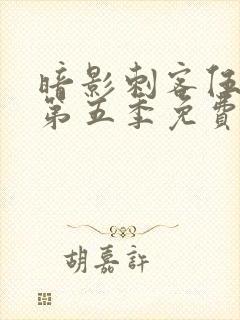 暗影刺客伍
第五季免費
胡嘉許